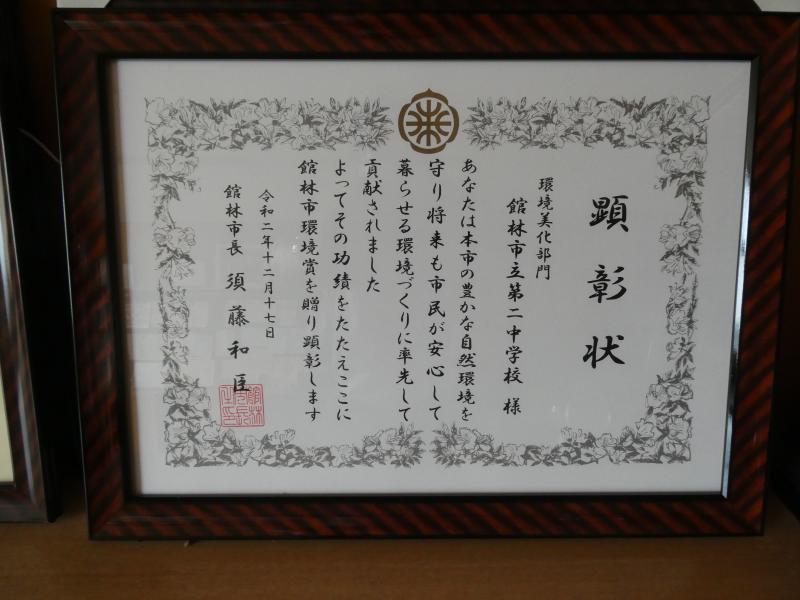 顕彰状
環境美化部門
館林市立第二中学校 様
あなたは本市の豊かな自然環境を
守り将来も市民が安心して
暮らせる環境づくりに率先して
貢献されました
よってその功績をたたえここに
館林市環境賞を贈り顕彰します
令和二年十二月十七日
館林市長 須藤和臣